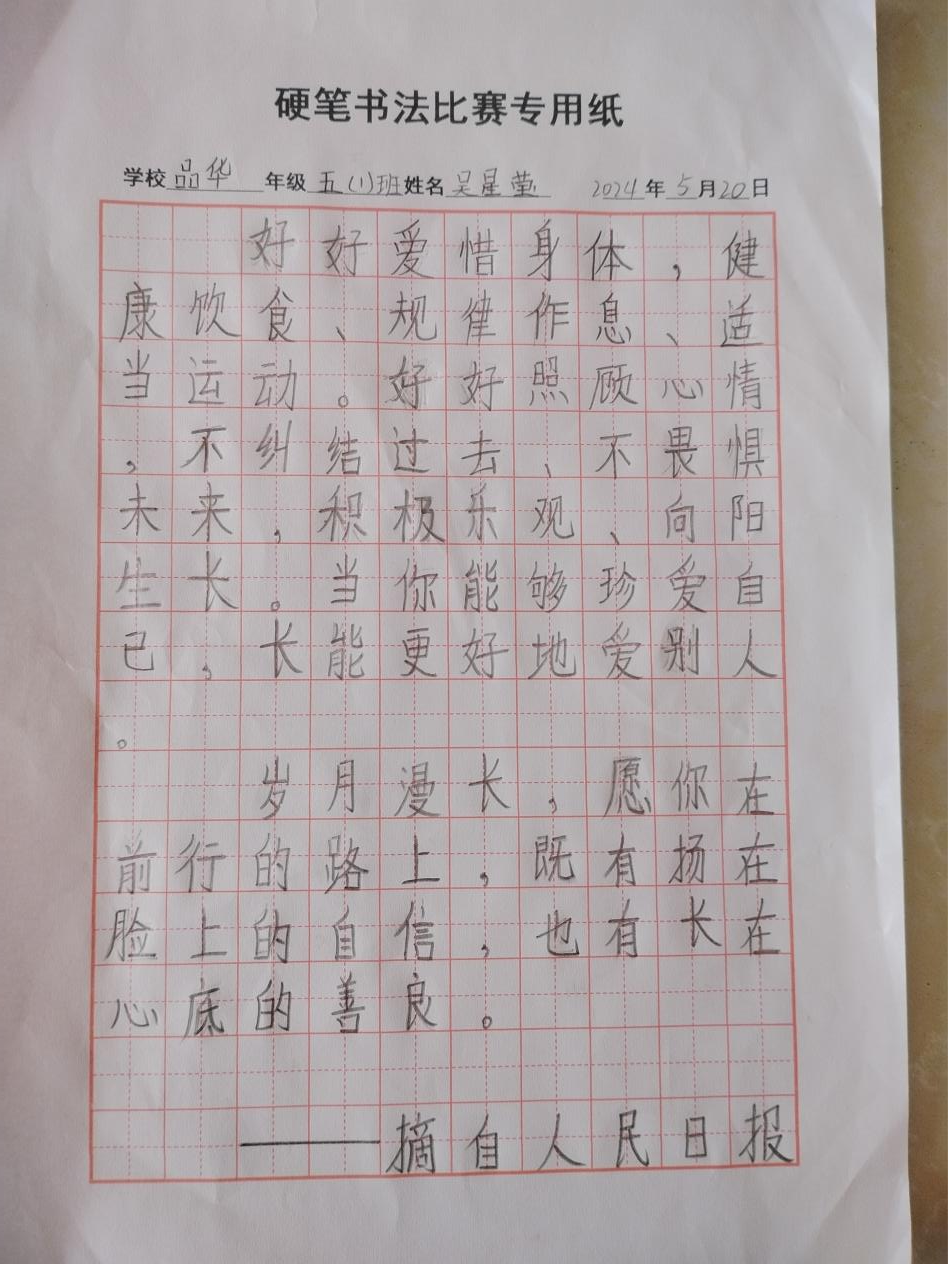 硬笔书法比赛专用纸
学校 品华 年级 五(1)班 姓名 吴星莹 2024年5月20日
好好爱惜身体，健
康饮食、规律作息、适
当运动。好好照顾心情
，不纠结过去、不畏惧
未来，积极乐观、向阳
生长。当你能够珍爱自
己，长能更好地爱别人
。
岁月漫长，愿你在
前行的路上，既有扬在
脸上的自信，也有长在
心底的善良。
——摘自人民日报